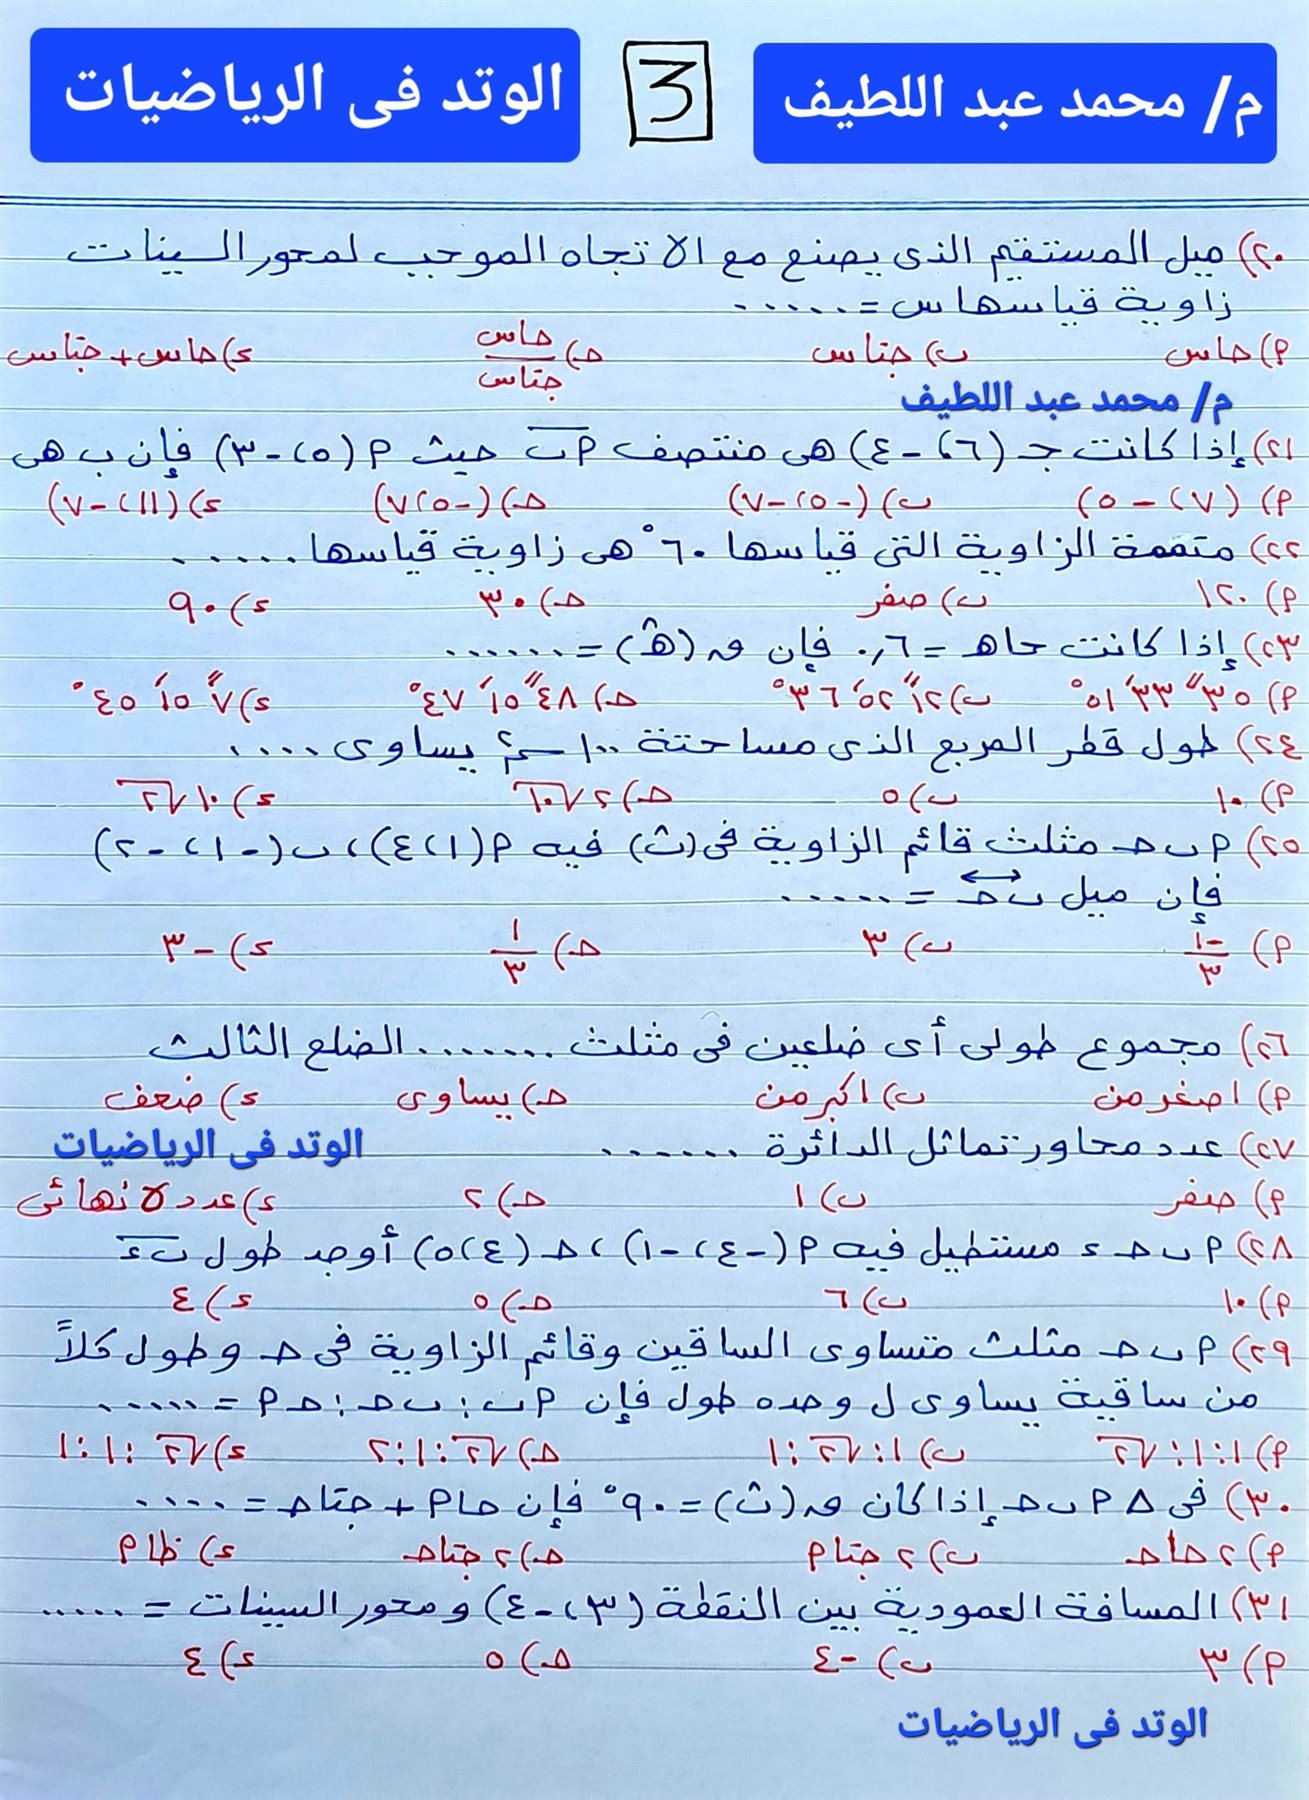 م/ محمد عبد اللطيف 3 الوتد فى الرياضيات
٢٠) ميل المستقيم الذى يصنع مع الاتجاه الموجب لمحور السينات
زاوية قياسها س = ......
م) حاس ب) جتاس حـ) حاس/جتاس ء) حاس + جتاس
م/ محمد عبد اللطيف
٢١) إذا كانت جـ (٦، -٤) هى منتصف م ب حيث م (٥، -٣) فإن ب هى
م) (٧، -٥) ب) (-٥، -٧) حـ) (-٥، ٧) ء) (١١، -٧)
٢٢) متممة الزاوية التى قياسها ٦٠° هى زاوية قياسها ......
م) ١٢٠ ب) صفر حـ) ٣٠ ء) ٩٠
٢٣) إذا كانت حاهـ = ٠,٦ فإن ق (هـ) = ......
م) ٣٥ ً ٣٣ َ ٥١° ب) ١٢ ً ٥٢ َ ٣٦° حـ) ٤٨ ً ١٥ َ ٤٧° ء) ٧ ً ١٥ َ ٤٥°
٢٤) طول قطر المربع الذى مساحتة ١٠٠ سم٢ يساوى ....
م) ١٠ ب) ٥ حـ) ٢√١٠ ء) ١٠√٢
٢٥) م ب حـ مثلث قائم الزاوية فى (ب) فيه م (١، ٤)، ب (-١، -٢)
فإن ميل ب حـ = ......
م) -١/٣ ب) ٣ حـ) ١/٣ ء) -٣
٢٦) مجموع طولى أى ضلعين فى مثلث ....... الضلع الثالث
م) اصغر من ب) اكبر من حـ) يساوى ء) ضعف
٢٧) عدد محاور تماثل الدائرة ...... الوتد فى الرياضيات
م) صفر ب) ١ حـ) ٢ ء) عدد لا نهائى
٢٨) م ب حـ ء مستطيل فيه م (-٤، -١)، حـ (٤، ٥) أوجد طول ب ء
م) ١٠ ب) ٦ حـ) ٥ ء) ٤
٢٩) م ب حـ مثلث متساوى الساقين وقائم الزاوية فى حـ وطول كلاً
من ساقية يساوى ل وحده طول فإن م ب : ب حـ : حـ م = ......
م) ١ : ١ : √٢ ب) ١ : √٢ : ١ حـ) √٢ : ١ : ٢ ء) √٢ : ١ : ١
٣٠) فى △ م ب حـ إذا كان ق (ب) = ٩٠° فإن حا م + جتا حـ = ....
م) ٢ حا حـ ب) ٢ جتا م حـ) ٢ جتا حـ ء) ظا م
٣١) المسافة العمودية بين النقطة (٣، -٤) و محور السينات = .....
م) ٣ ب) -٤ حـ) ٥ ء) ٤
الوتد فى الرياضيات